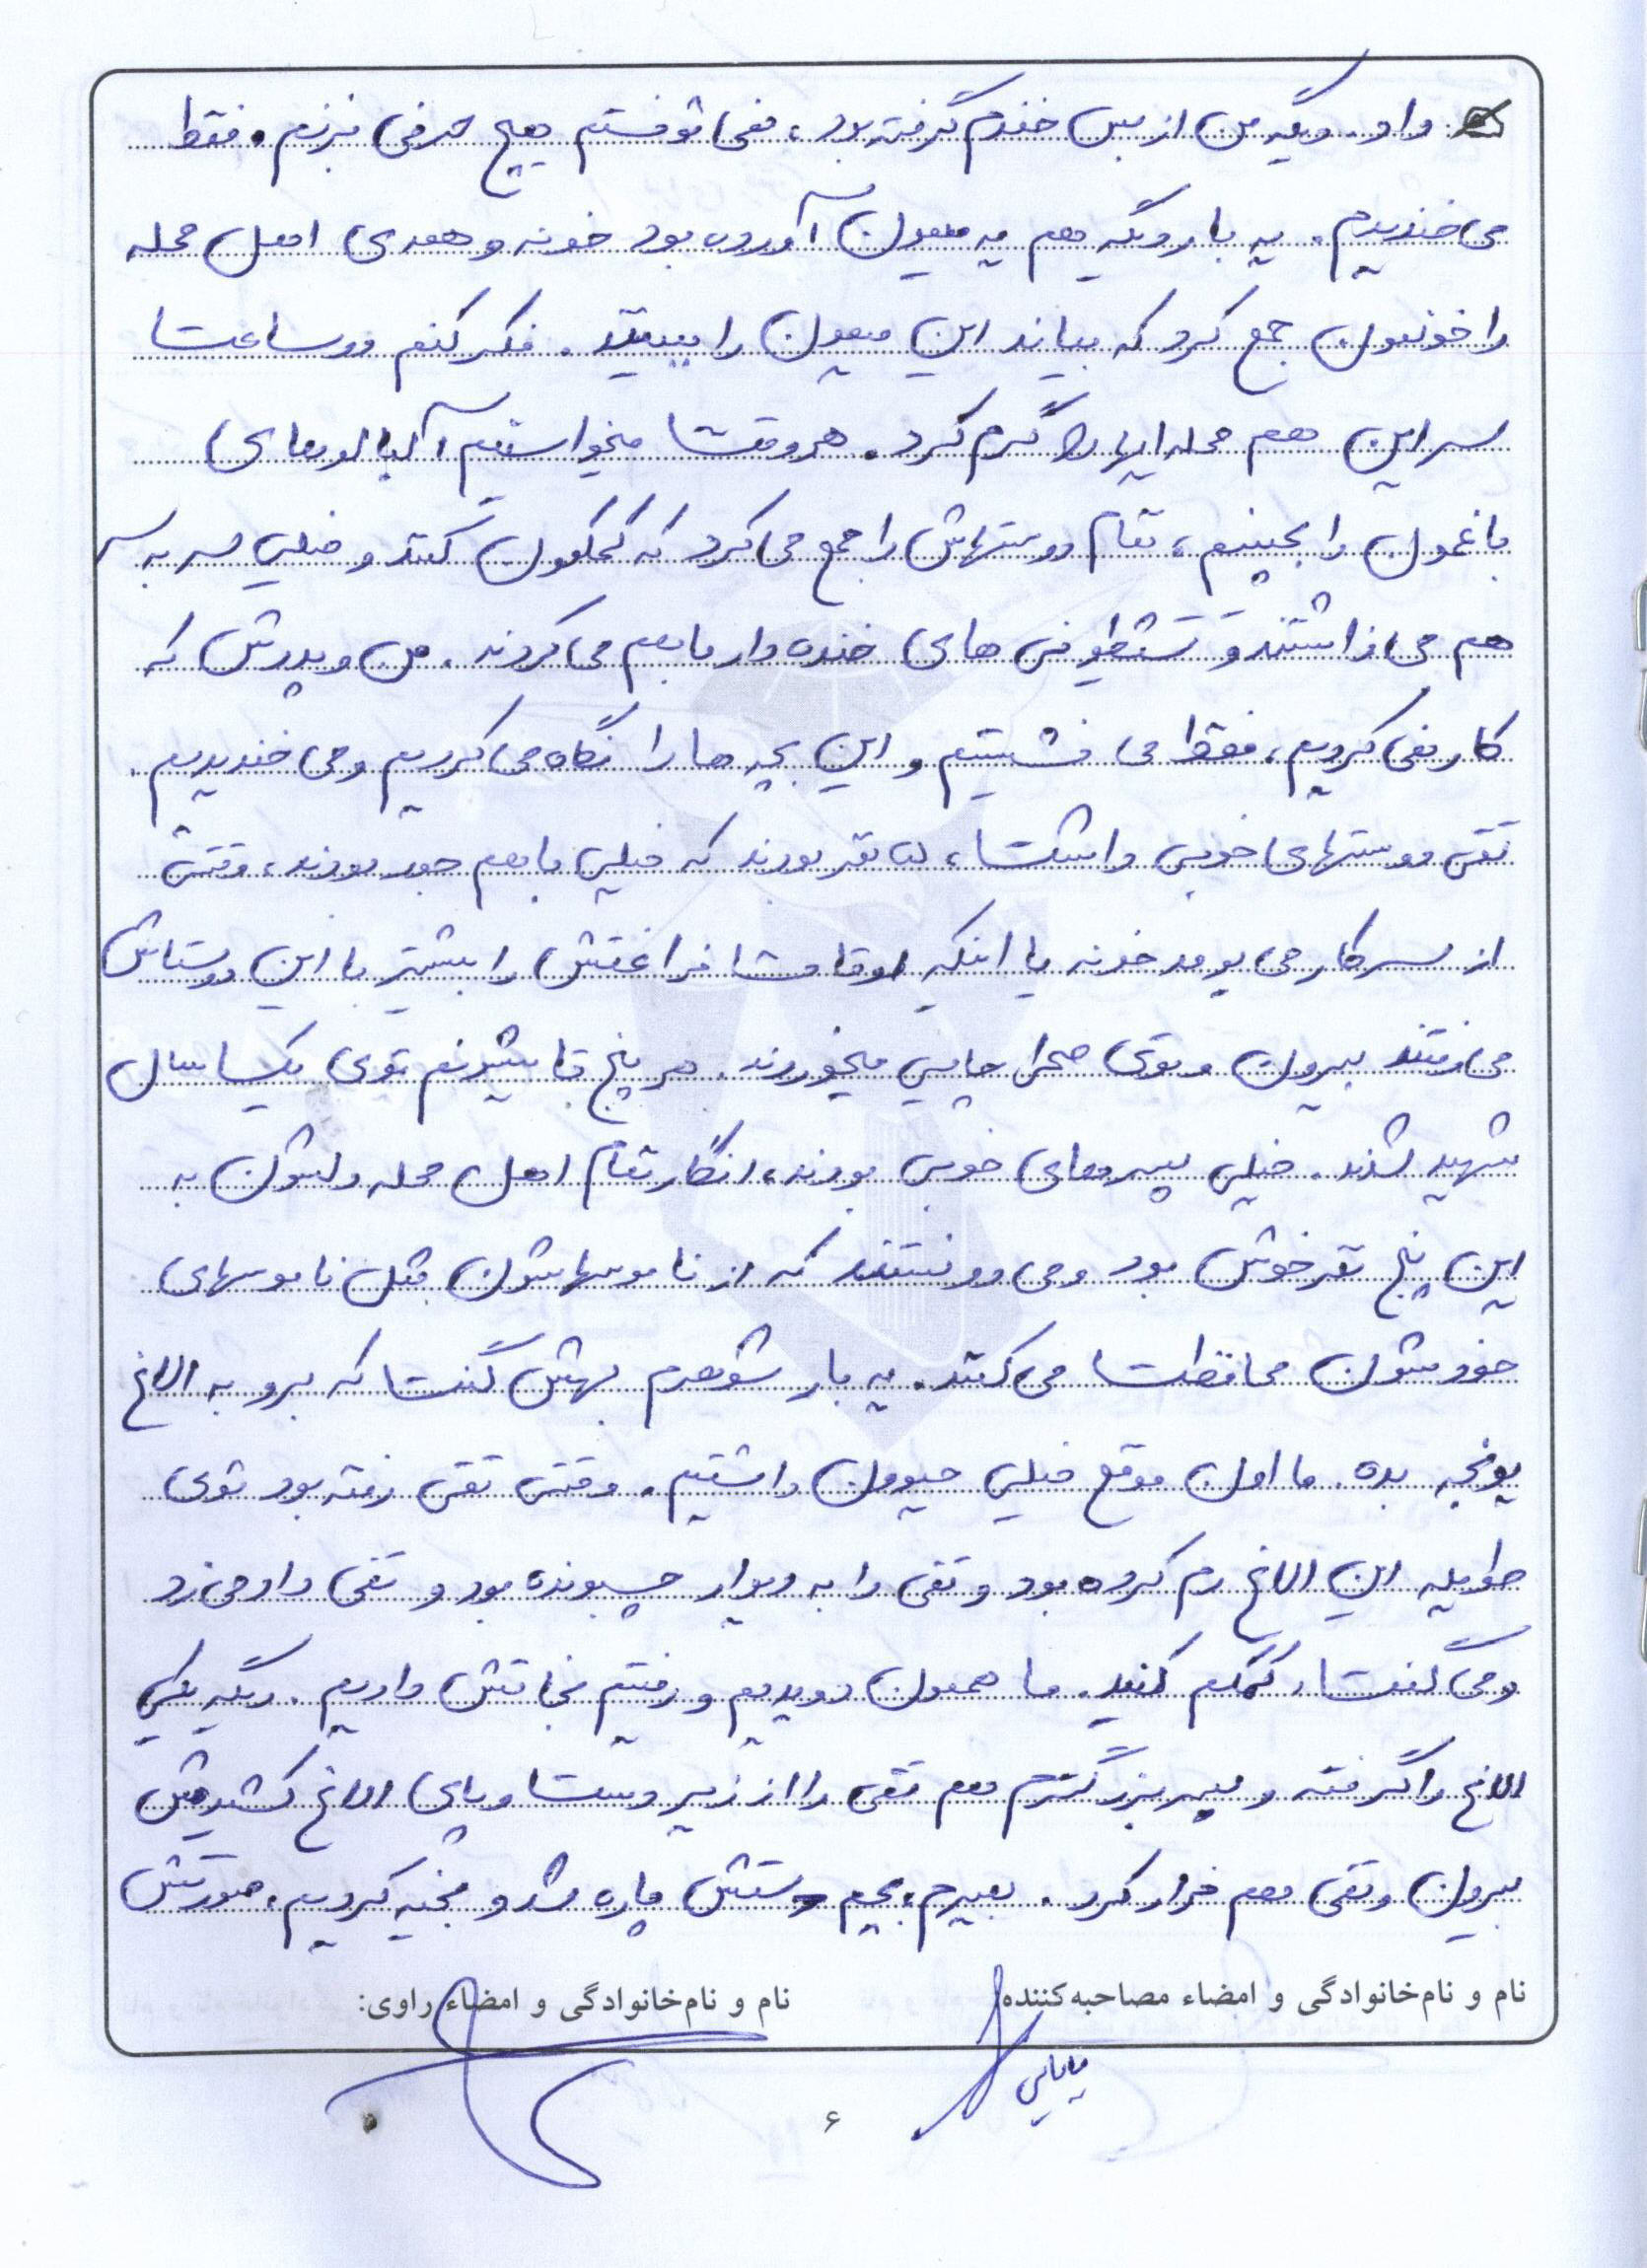 داد. دیگه من از بس خندم گرفته بود، نمی تونستم هیچ حرفی بزنم. فقط
می خندیدم. یه بار دیگه هم یه میمون آورده بود خونه و همه ی اهل محله
را خونمون جمع کرد که بیاند این میمون را ببینند. فکر کنم دو ساعت
سر این هم محله ایها را گرم کرد. هر وقت میخواستیم آلبالوهای
باغمون را بچینیم، تمام دوستهاش را جمع می کرد که کمکمون کنند و خیلی سر به سر
هم می ذاشتند و شوخی های خنده دار با هم می کردند. من و پدرش که
کار نمی کردیم، فقط می نشستیم و این بچه ها را نگاه می کردیم و می خندیدیم.
تقی دوستهای خوبی داشت، نفر بودند که خیلی با هم جور بودند، وقتی
از سر کار می یومد خونه یا اینکه اوقات فراغتش را بیشتر با این دوستاش
می رفتند بیرون و توی صحرا چایی میخوردند. هر پنج تا شونم توی یکسال
شهید شدند. خیلی پسرهای خوبی بودند، انگار تمام اهل محله دلشون به
این پنج نفر خوش بود و می دونستند که از ناموسهاشون مثل ناموسهای
خودشون محافظت می کنند. یه بار شوهرم بهش گفت که برو به الاغ
یونجه بده. ما اون موقع خیلی حیوون داشتیم. وقتی تقی رفته بود توی
طویله این الاغ رم کرده بود و تقی را به دیوار چسبونده بود و تقی داد می زد
و می گفت، کمکم کنید. ما هممون دویدیم و رفتیم نجاتش دادیم. دیگه یکی
الاغ را گرفته و پسر بزرگترم هم تقی را از زیر دست و پای الاغ کشیدش
بیرون و تقی هم فرار کرد. بمیرم، بچم دستش پاره شد و بخیه کردیم، صورتش
نام و نام‌خانوادگی و امضاء مصاحبه‌کننده:
نام و نام‌خانوادگی و امضاء راوی:
بابایی
۶